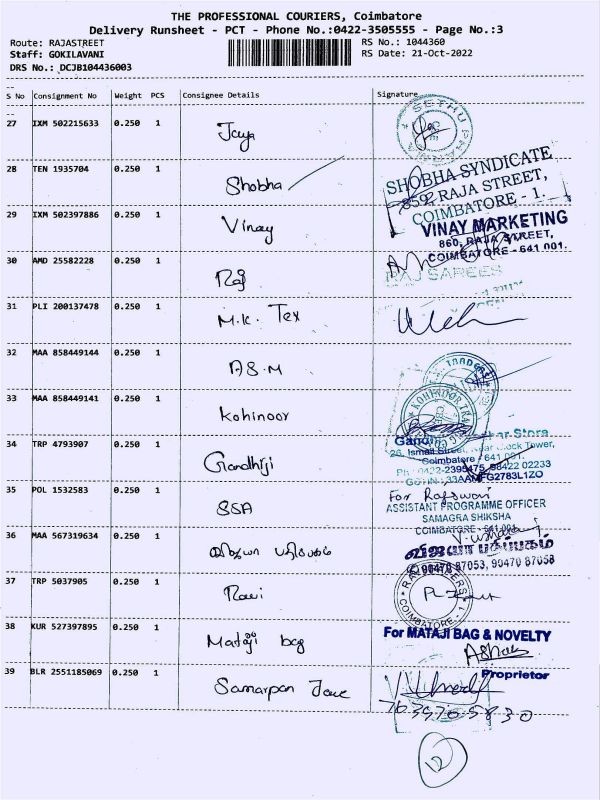 THE PROFESSIONAL COURIERS, Coimbatore
Delivery Runsheet - PCT - Phone No.:0422-3505555 - Page No.:3
Route: RAJASTREET
RS No.: 1044360
Staff: GOKILAVANI
RS Date: 21-Oct-2022
DRS No.: DCJB104436003
S No Consignment No Weight PCS Consignee Details Signature
27 IXM 502215633 0.250 1 Jaya
SETHU
28 TEN 1935704 0.250 1 Shobha
SHOBHA SYNDICATE
859, RAJA STREET,
COIMBATORE - 1.
29 IXM 502397886 0.250 1 Vinay
VINAY MARKETING
860, RAJA STREET,
COIMBATORE - 641 001.
30 AMD 25582228 0.250 1 Raj
RAJ SAREES
31 PLI 200137478 0.250 1 M.K. Tex
32 MAA 858449144 0.250 1 A.S.M
TRADERS
33 MAA 858449141 0.250 1 Kohinoor
KOHINOOR
34 TRP 4793907 0.250 1 Gandhiji
Gandhi Store
26, Ismail Street, Near Clock Tower,
Coimbatore - 641 001.
Ph: 0422-2395475, 98422 02233
GSTIN: 33AAMFG2783L1ZO
35 POL 1532583 0.250 1 SSA
For
ASSISTANT PROGRAMME OFFICER
SAMAGRA SHIKSHA
COIMBATORE - 641 001.
36 MAA 567319634 0.250 1 விஜயா பதிப்பகம்
விஜயா பதிப்பகம்
90470 87053, 90470 87058
37 TRP 5037905 0.250 1 Ravi
COIMBATORE - 1
38 KUR 527397895 0.250 1 Mataji bag
For MATAJI BAG & NOVELTY
Proprietor
39 BLR 2551185069 0.250 1 Samarpan
12